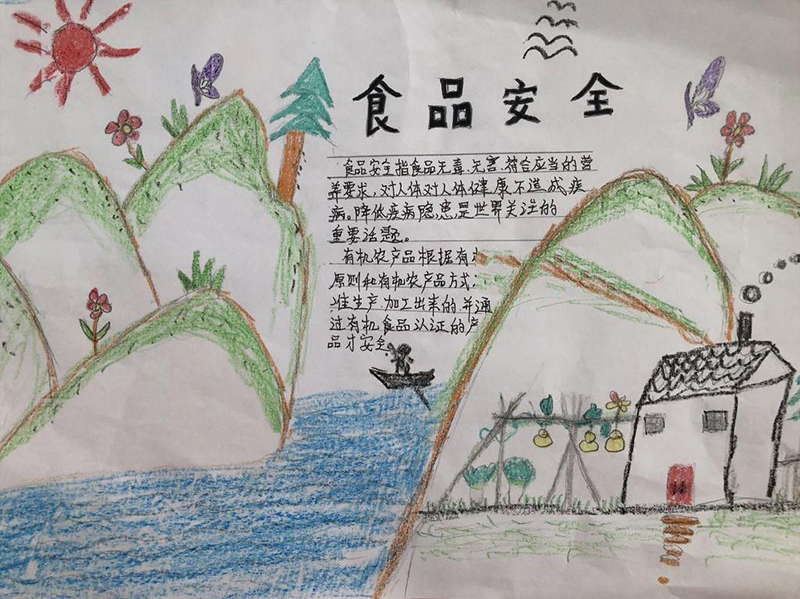 食品安全
食品安全指食品无毒、无害、符合应当的营
养要求,对人体对人体健康不造成疾
病。降低疾病隐患,是世界关注的
重要话题。
有机农产品根据有
原则和有机农产品方式,
生产加工出来的,并通
过有机食品认证的产
品才安全